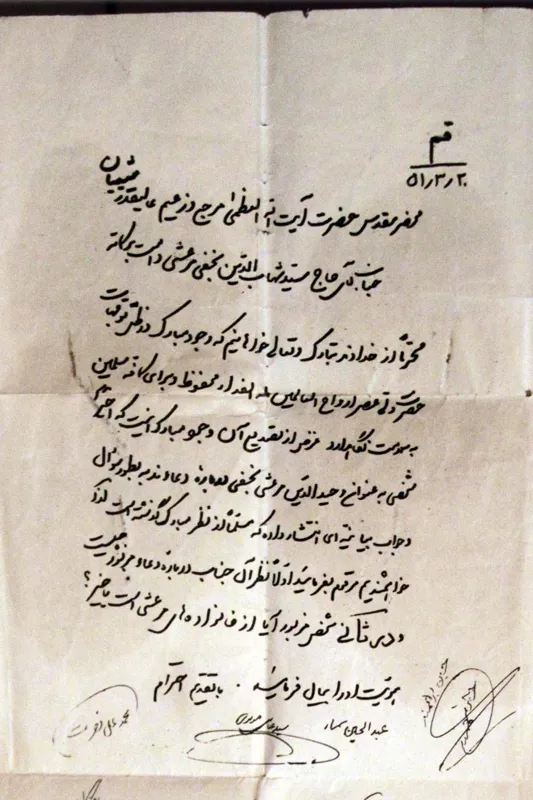 قم
۵۱/۳/۲۰
محضر مقدس حضرت آیت الله العظمی مرجع و زعیم عالیقدر شیعیان
جناب آقای حاج سید شهاب الدین نجفی مرعشی دامت برکاته
محترماً از خداوند تبارک و تعالی خواهانیم که وجود مبارک در ظل توجهات
حضرت ولی عصر ارواح العالمین له الفداء محفوظ و برای کافه مسلمین
به سلامت نگهدارد غرض از تصدیع آن وجود مبارک اینست که اخیراً
شخصی به عنوان وحیدالدین مرعشی نجفی درباره دعاء ندبه بطور سؤال
و جواب بیانیه ای انتشار داده که مسلماً از نظر مبارک گذشته است لذا
خواهشمندیم مرقوم بفرمائید اولاً نظر آن جناب درباره دعاء مزبور چیست
و در ثانی شخص مزبور آیا از خانواده های مرعشی است یا خیر؟
هویت او را بیان فرمائید . با تقدیم احترام
عبدالحسین
محمد علی